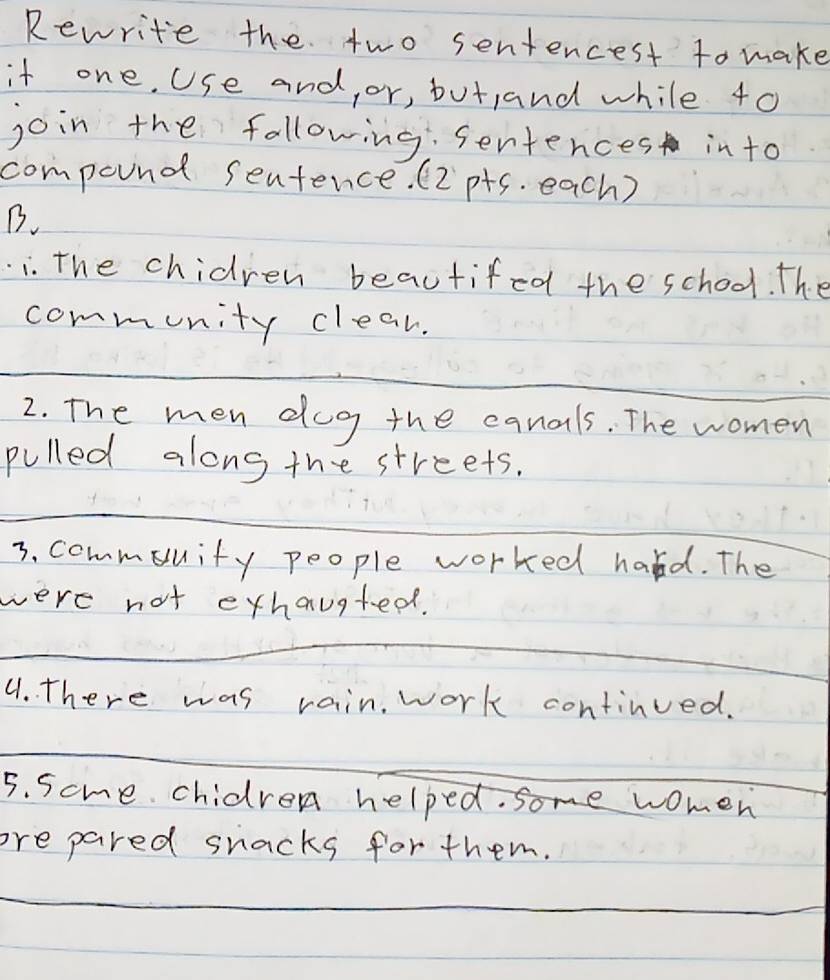 Rewrite the two sentencest to make
it one. Use and, or, but, and while to
join the following. Sentences into
compound sentence. (2 pts. each)
B.
1. The chidren beautifed the school. The
community clean.
2. The men dug the canals. The women
pulled along the streets.
3. Community people worked hard. The
were not exhausted.
4. There was rain. Work continued.
5. Some chidren helped. Some women
prepared snacks for them.